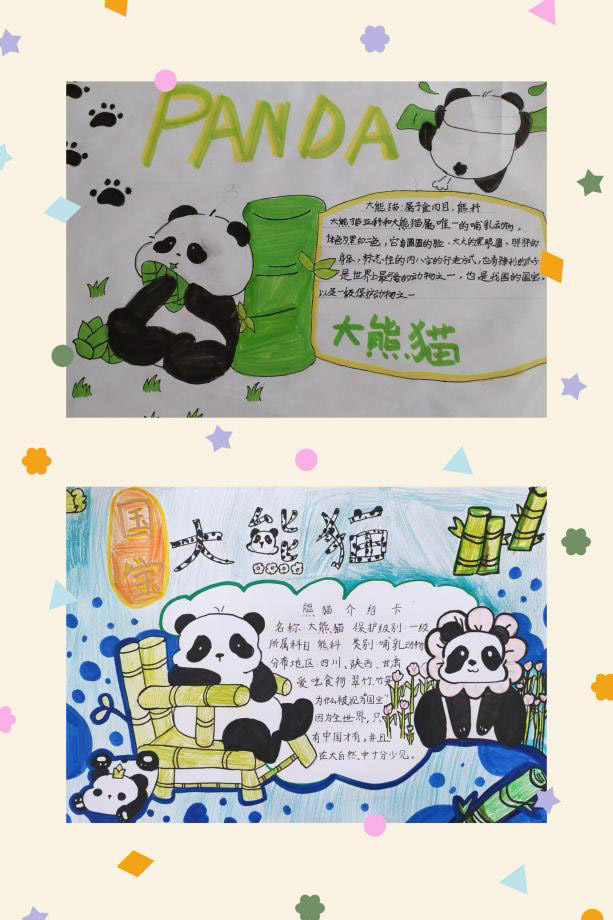 PANDA
大熊猫:属于食肉目、熊科
大熊猫亚科和大熊猫属唯一的哺乳动物，
体色为黑白二色，它有圆圆的脸、大大的黑眼圈、胖胖的
身体，标志性的内八字的行走方式，也有锋利的爪子
是世界上最可爱的动物之一，也是我国的国宝，
以是一级保护动物之一
大熊猫
国宝
大熊猫
熊猫介绍卡
名称:大熊猫 保护级别:一级
所属科目 熊科 类别:哺乳动物
分布地区:四川、陕西、甘肃
爱吃食物 翠竹、竹笋
为什么被视为"国宝"
因为全世界，只
有中国才有，并且
在大自然中十分少见。